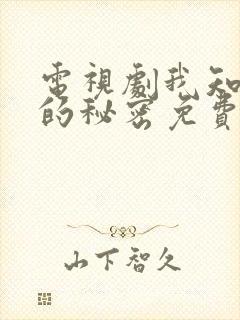 電視劇我知
的秘密免費
山下智久